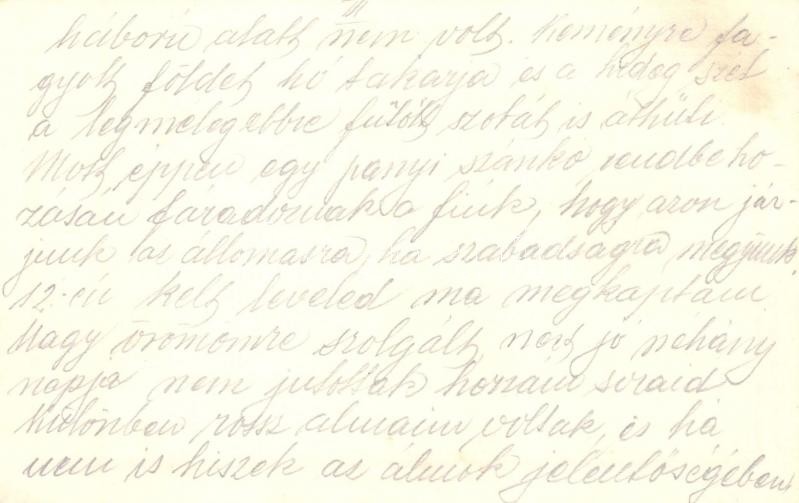 III
háború alatt nem volt. Keményre fa-
gyott földet hó takarja és a hideg szél
a legmelegebbre fűtött szobát is áthűti.
Most éppen egy panyi szánkó rendbe ho-
zásán fáradoznak a fiúk, hogy azon jár-
junk az állomásra, ha szabadságra megyünk.
12-én kelt leveled ma megkaptam
Nagy örömömre szolgált, mert jó néhány
napja nem jutottak hozzám soraid
különben rossz álmaim voltak, és ha
nem is hiszek az álmok jelentőségében